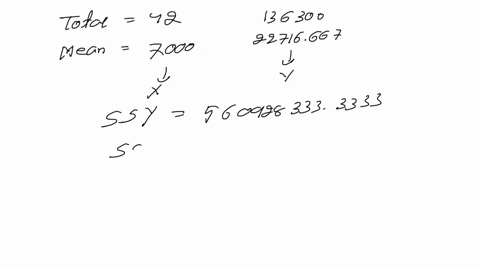 Total = 42 136300
Mean = 7.000 22716.667
↓ ↓
X Y
SSY = 560928333.3333
S